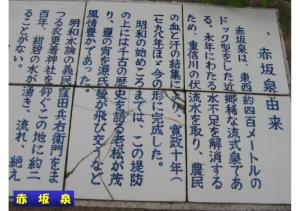 赤坂泉由来
赤坂泉は、東西約四百メートルの
ドック型をした近郷稀な流式泉であ
る、永年にわたる水不足を解消する
ため、重信川の伏流水を取り、農民
の血と汗の結集により、寛政十年へ
七九八年ほゞ今の形に完成した。
昭和の始めころまでは、この堤防
の上には千古の歴史を語る老松が茂
り、夏の宵を源氏螢が飛び交うなど
風情豊かであった。
明治水論の義民窪田兵右衛門をま
つる衣更着神社を仰ぐこの地に約二
百年、紺碧の水が湧き、流れ、絶え
ることがない。
赤坂泉